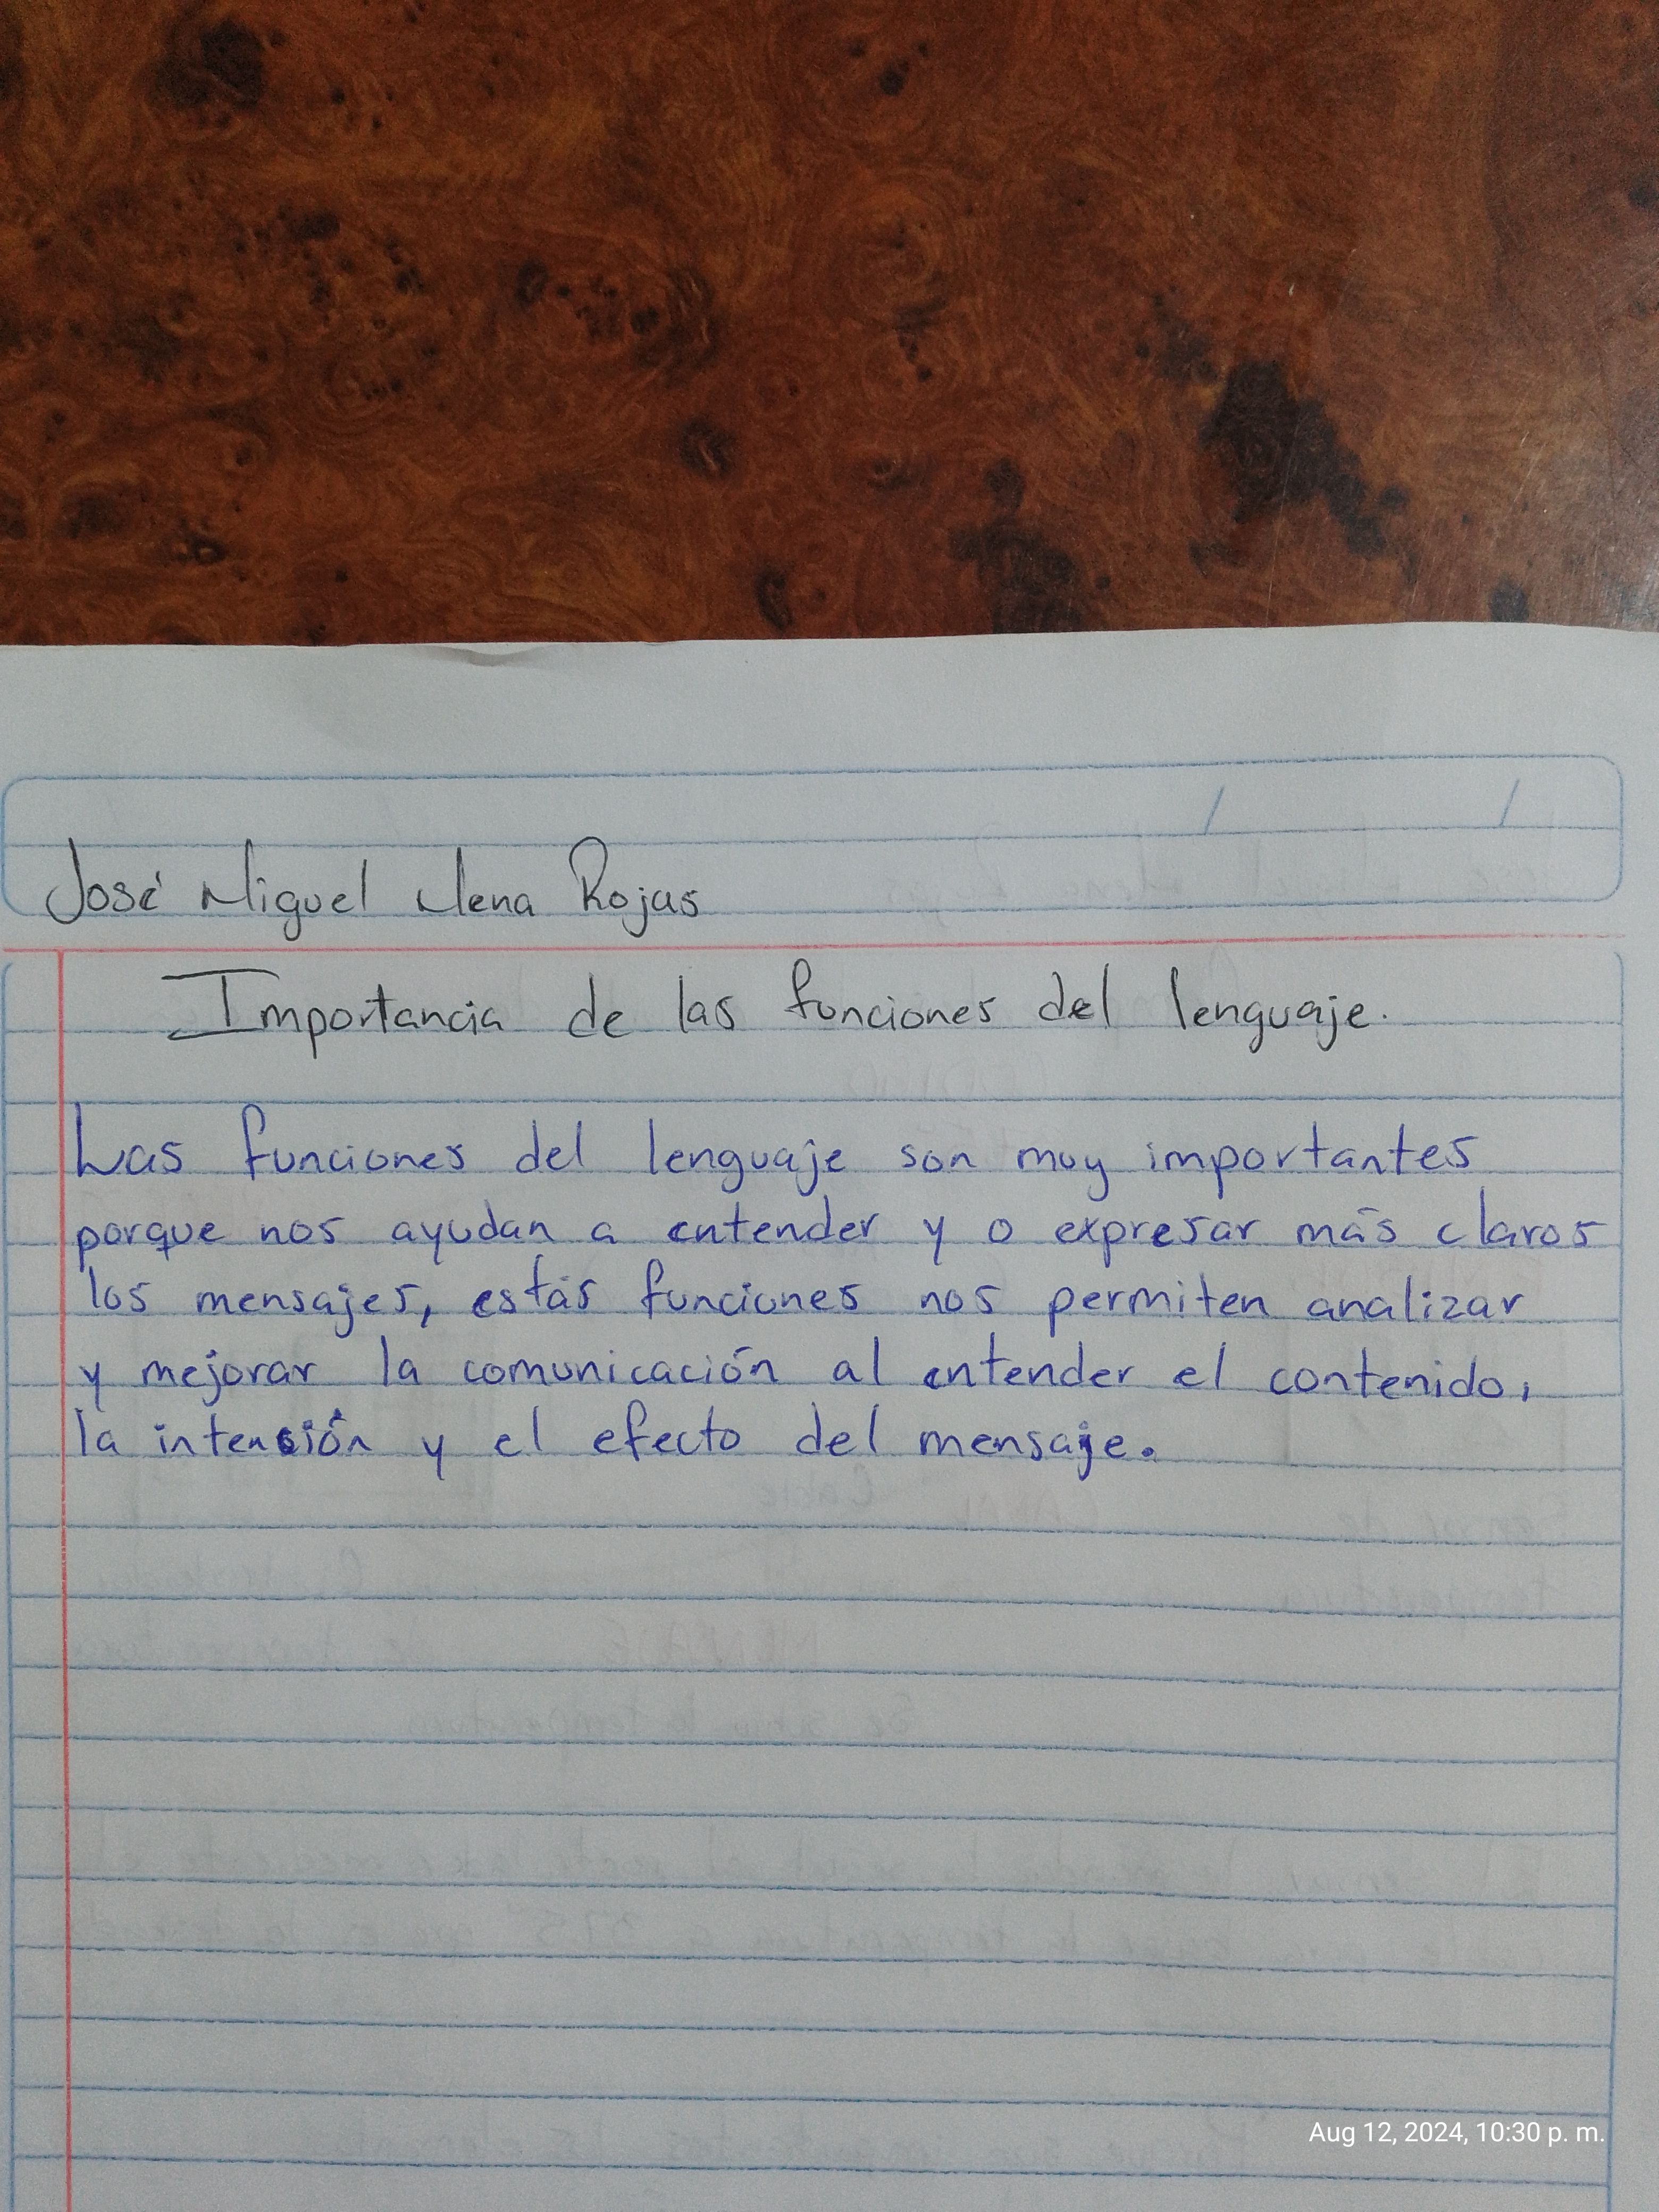 José Miguel Mena Rojas
Importancia de las funciones del lenguaje.
Las funciones del lenguaje son muy importantes
porque nos ayudan a entender y o expresar más claros
los mensajes, estás funciones nos permiten analizar
y mejorar la comunicación al entender el contenido,
la intensión y el efecto del mensaje.
Aug 12, 2024, 10:30 p. m.